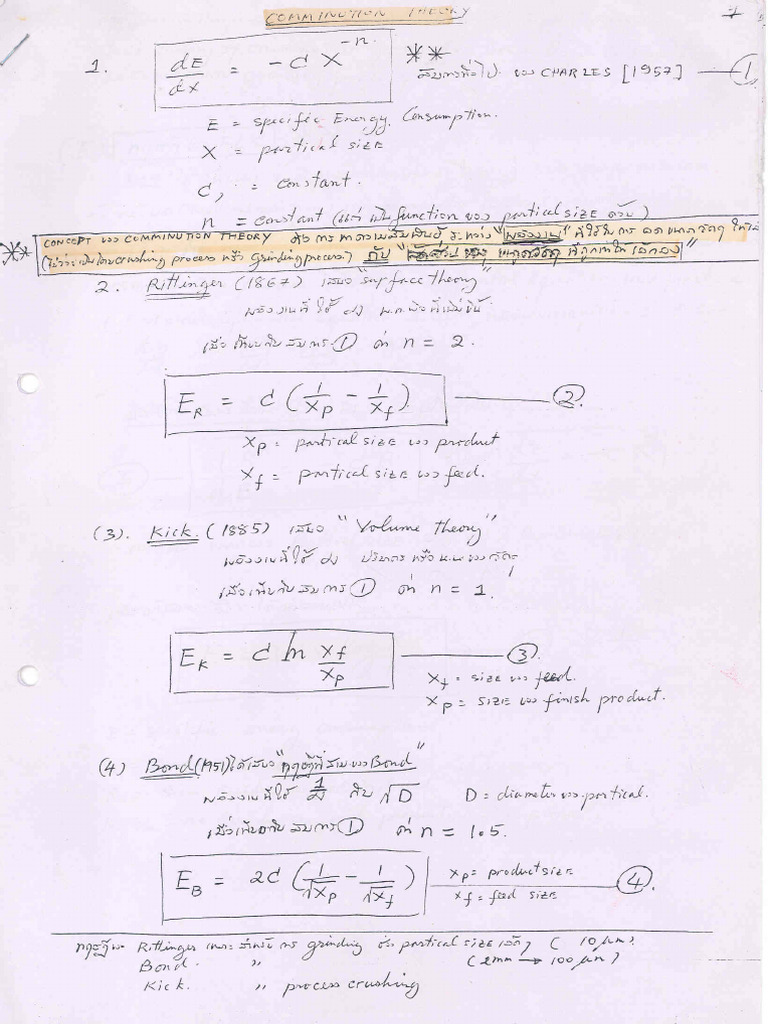 COMMINUTION THEORY
1. dE/dX = -C X^-n ** สมการทั่วไป ของ CHARLES [1957] ①
E = specific Energy Consumption.
X = partical size
C, = constant.
n = constant (แต่ เป็น function ของ partical size ด้วย)
** CONCEPT ของ COMMINUTION THEORY คือ การ หาความสัมพันธ์ ระหว่าง "พลังงาน" ที่ใช้ในการ ลด ขนาดวัสดุ
(ไม่ว่าจะเป็นโดย crushing process หรือ grinding process) กับ
2. Rittinger (1867) เสนอ "surface theory"
พลังงานที่ ใช้ ∝ พ.ท.ผิวที่เพิ่มขึ้น
เมื่อ เทียบกับสมการ ① ค่า n = 2.
E_R = C (1/Xp - 1/Xf) ②
Xp = partical size ของ product
Xf = partical size ของ feed.
(3). Kick. (1885) เสนอ "Volume theory"
พลังงานที่ใช้ ∝ ปริมาตร หรือ น.น. ของวัสดุ
เมื่อเทียบกับสมการ ① ค่า n = 1.
E_K = C ln Xf/Xp ③
Xf = size ของ feed.
Xp = size ของ finish product.
(4) Bond (1951) ได้เสนอ "ทฤษฎีที่สามของ Bond"
พลังงานที่ใช้ 1/∝ กับ √D D = diameter ของ partical.
เมื่อเทียบกับสมการ ① ค่า n = 1.5.
E_B = 2C (1/√Xp - 1/√Xf) ④
Xp = product size
Xf = feed size
ทฤษฎีของ Rittinger เหมาะ สำหรับ การ grinding ซึ่ง partical size เล็กๆ ( 10 μm).
Bond. " (2mm → 100 μm)
Kick. " process crushing